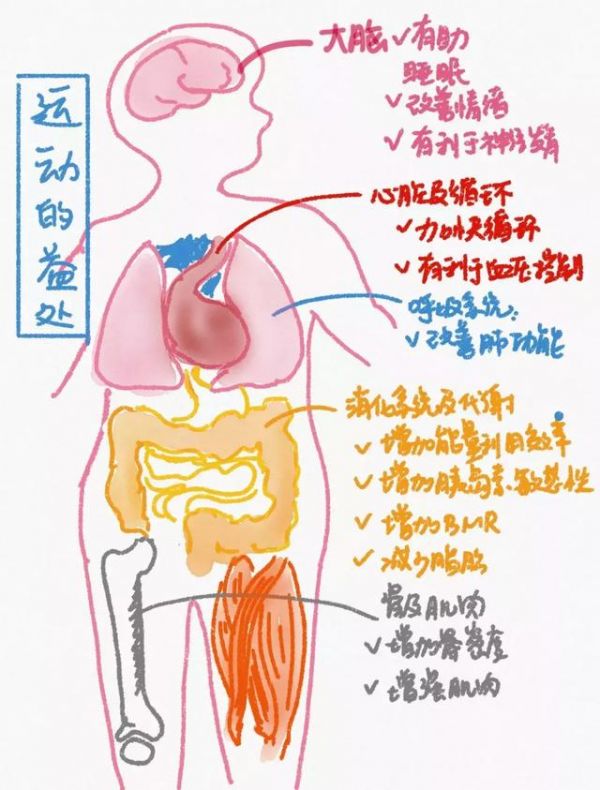 运动的益处
大脑✓有助
睡眠
✓改善情绪
✓有利于神经
心脏及循环
✓加快循环
✓有利于血压控制
呼吸系统:
✓改善肺功能
消化系统及代谢
✓增加能量利用效率
✓增加胰岛素敏感性
✓增加BMR
✓减少脂肪
骨及肌肉
✓增加骨密度
✓增强肌肉